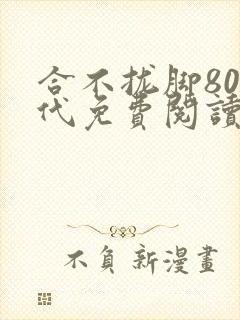 合不拢脚80
代免費閱讀
不負新漫畫